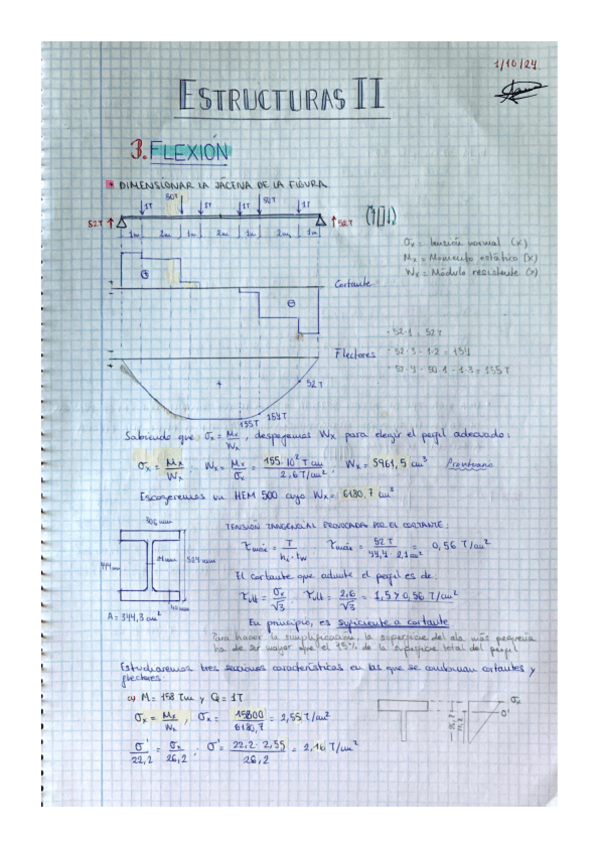 1/10/24
ESTRUCTURAS II
3. FLEXIÓN
DIMENSIONAR LA JÁCENA DE LA FIGURA
1T 50T 1T 1T 50T 1T
52T 52T
1m 2m 1m 2m 1m 2m 1m
σx = tensión normal (x)
Mx = Momento estático (x)
Wx = Módulo resistente (x)
Cortante
52·1 = 52T
Flectores
52·3 - 1·2 = 154
155T
52T
155T 154T
Sabiendo que σx = Mx/Wx, despejamos Wx para elegir el perfil adecuado:
σx = Mx/Wx ; Wx = Mx/σx = 155·10² T cm / 2,6 T/cm² ; Wx = 5961,5 cm³ Prontuario
Escogeremos un HEM 500 cuyo Wx = 6180,7 cm³
306 mm
444 mm
21 mm
524 mm
40 mm
A = 344,3 cm²
TENSIÓN TANGENCIAL PROVOCADA POR EL CORTANTE:
τmáx = T/hi·tw τmáx = 52T / 44,4 · 2,1 cm² = 0,56 T/cm²
El cortante que admite el perfil es de:
τult = σx/√3 τult = 2,6/√3 = 1,5 > 0,56 T/cm²
En principio, es suficiente a cortante
Para hacer la simplificación, la superficie del ala más pequeña
ha de ser mayor que el 15% de la superficie total del perfil
Estudiaremos tres secciones características en las que se combinan cortantes y
flectores:
a) M = 158 Tm y Q = 1T
σx = Mx/Wx ; σx = 15800/6180,7 = 2,55 T/cm²
σ'/22,2 = σx/26,2 ; σ' = 22,2 · 2,55 / 26,2 = 2,16 T/cm²
σx
σ'